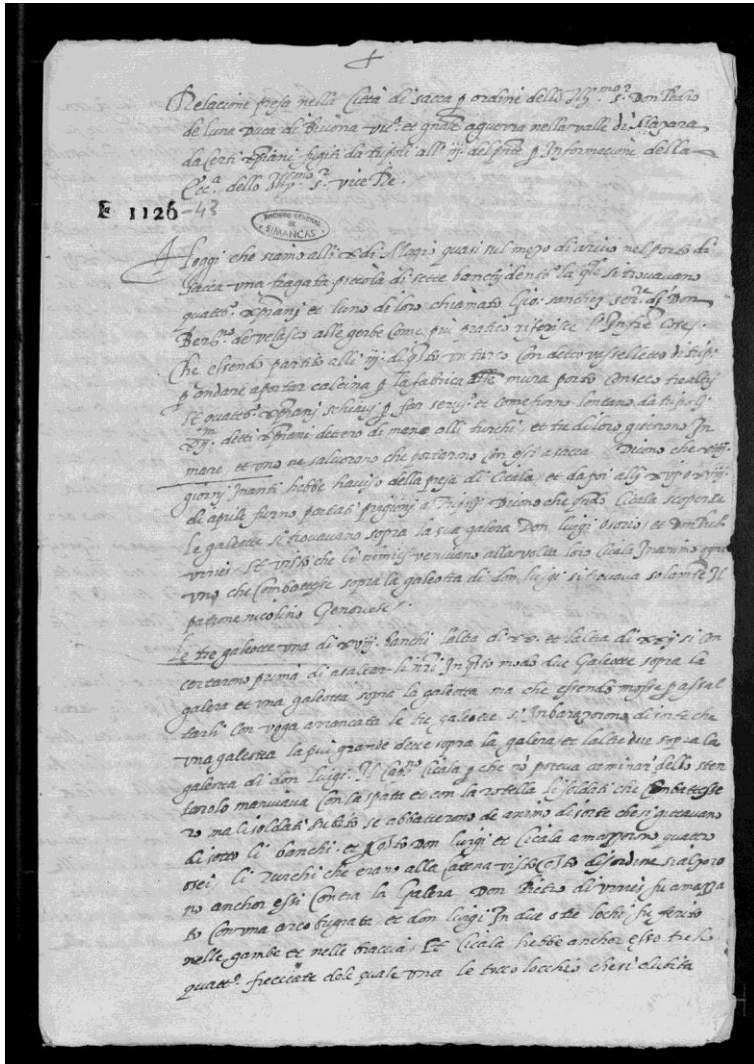 Relacione presa nella Città di sacca p ordini dello Ill.mo s.r Don Pedro
de luna Duca di Bivona vic.o et gnale a guerra nella valli di Mazara
da Certi xpiani fugiti da tripoli alli iij. del pnte p Informacioni della
Ecc.a dello Ill.mo s.r vice Re.
E 1126 -43
ARCHIVO GENERAL DE SIMANCAS
Hoggi che siamo alli x di Magio quasi sul mezo di arivo nel porto di
sacca una fragata piccola di sette banchi dento la qle si trovavano
quattro xpiani et luno di loro chiamato Gio: sanchez ser.re di Don
Ber.no de velasco alle gerbe Come piu pratico riferisce
Che essendo partito alli iij. di qsto un turco Con detto vasselletto di
p andare a portar calcina p la fabrica delle mura porto Con seco
et quatro xpiani schiavi p far servi. et come forno lontano da tripoli
detti xpiani dettero di mano alli turchi, et tre di loro
mare, et uno ne salvorono che portarono Con essi a sacca. Dicono che
giorni Inanti hebbe haviso della presa di Cicala, et da poi alli xvij o xviij
di aprile forno portati prigioni a Tripoli Dicono che Cicala scoperse
le galeotte si trovavano sopra la sua galera Don luigi osorio, et don
Et visto che li nimici venivano alla volta loro Cicala Inanimo ogni
uno che Combattesse sopra la galeotta di don luigi si trovava solamte Il
patrone nicolino Genovese.
Le tre galeotte una di xviij. banchi laltra di xx. et laltra di xxij si Con
certarono prima di asaltar li nri In qsto modo due Galeotte sopra la
galera et una galeotta sopra la galeotta ma che essendo mosse p assal
tarli Con voga arrancata le tre galeotte si Inbarazorono di sorte che
una galeotta la piu grande dette sopra la galera, et laltre due sopra la
galeotta di don luigi. Il Cicala p che nò poteva caminar dello sten
tarolo Con la spata et con la rotella li soldati che Combattesse
ro ma li soldati subito se abbatterono de animo di sorte che si gittavano
di sotto li banchi. et p qsto don luigi et Cicala amazzorno quattro
li Turchi che erano alla Catena visto qsto disordine
no anchor essi Contra la Galera Don Pietro di fu amazza
to Con una arcobugiata, et don luigi In due o tre lochi fu ferito
nelle gambe et nelle braccia, Et Cicala hebbe anchor esso tre ho
quatt.o frecciate dele quale una le tocco locchio che si dubita